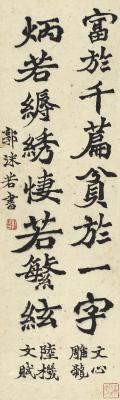 富於千篇貧於一字
文心
雕龍
炳若縟綉悽若繁絃
陸機
文賦
郭沫若書